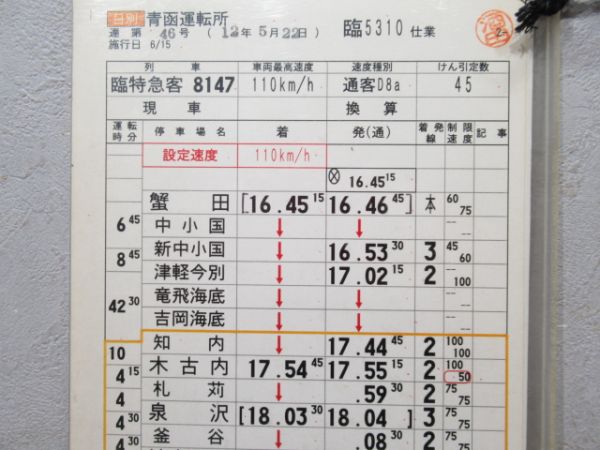 日別 青函運転所
運 第 46 号 ( 12年 5月22日 ) 臨5310 仕業
施行日 6/15
列 車 車両最高速度 速度種別 けん引定数
臨特急客 8147 110km/h 通客D8a 45
現 車 換 算
運転時分 停車場名 着 発(通) 着発線 制限速度 記事
設定速度 110km/h
16.45 15
蟹田 [16.45 15 16.46 45] 本 60 75
6 45 中小国 ↓ ↓ -- --
8 45 新中小国 ↓ 16.53 30 3 45 60
津軽今別 ↓ 17.02 15 2 -- 100
42 30 竜飛海底 ↓ ↓ -- --
吉岡海底 ↓ ↓ -- --
10 知内 ↓ 17.44 45 2 100 100
4 15 木古内 17.54 45 17.55 15 2 100 50
4 札苅 ↓ .59 30 2 75 75
4 30 泉沢 [18.03 30 18.04 ] 3 75 75
4 30 釜谷 ↓ .08 30 2 75 75